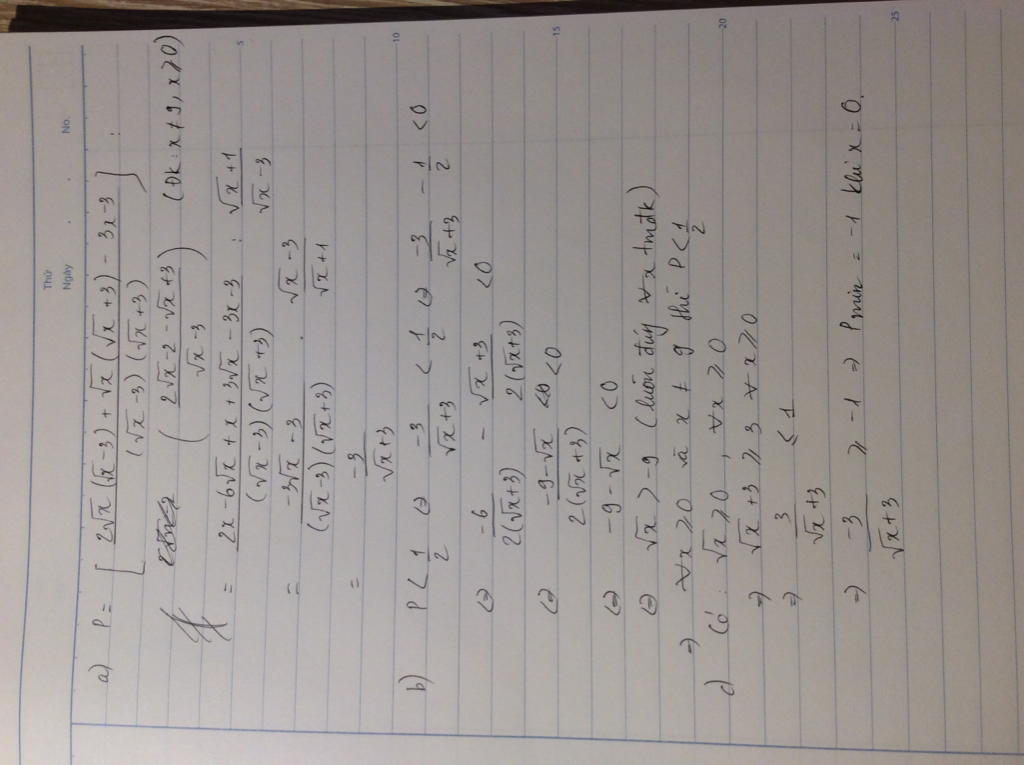 Thứ
Ngày . . No.
a) P = [ (2√x(√x-3) + √x(√x+3) - 3x-3) / ((√x-3)(√x+3)) ] :
( (2√x-2-√x+3) / (√x-3) ) (Đk: x≠9, x≥0)
= (2x-6√x+x+3√x-3x-3) / ((√x-3)(√x+3)) : (√x+1) / (√x-3)
5
= (-3√x-3) / ((√x-3)(√x+3)) . (√x-3) / (√x+1)
= -3 / (√x+3)
10
b) P < 1/2 ⇔ -3 / (√x+3) < 1/2 ⇔ -3 / (√x+3) - 1/2 < 0
⇔ -6 / (2(√x+3)) - (√x+3) / (2(√x+3)) < 0
⇔ (-9-√x) / (2(√x+3)) < 0
15
⇔ -9-√x < 0
⇔ √x > -9 (luôn đúng ∀x tmđk)
⇒ ∀x≥0 và x≠9 thì P < 1/2
20
c) Có: √x ≥ 0, ∀x ≥ 0
⇒ √x+3 ≥ 3 ∀x≥0
⇒ 3 / (√x+3) ≤ 1
⇒ -3 / (√x+3) ≥ -1 ⇒ Pmin = -1 khi x=0.
25